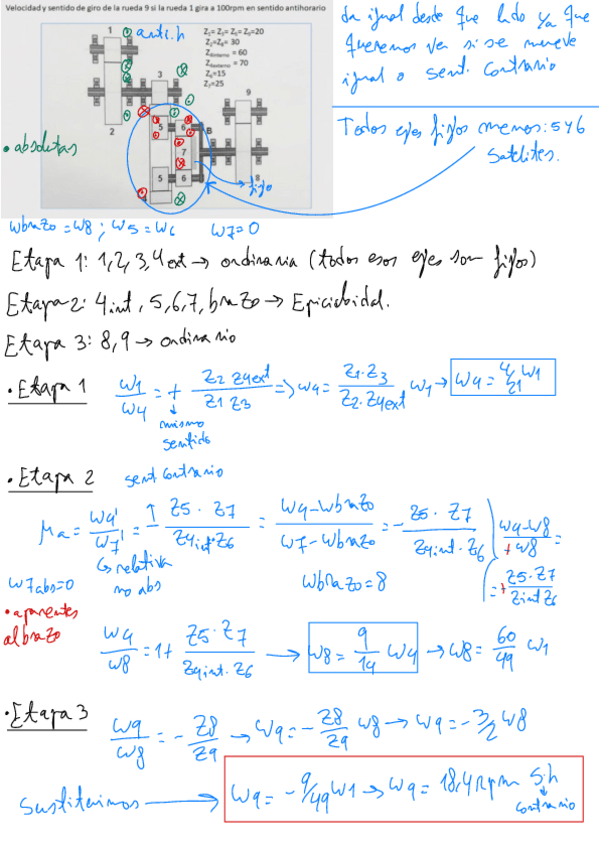 Velocidad y sentido de giro de la rueda 9 si la rueda 1 gira a 100rpm en sentido antihorario
1 anti.h
Z₁=Z₃=Z₅=Z₉=20
Z₂=Z₈= 30
Z₄interno = 60
Z₄externo = 70
Z₆=15
Z₇=25
3
9
2
5 6 B
7
5 6
4
8
fijo
• absolutas
da igual desde que lado ya que
queremos ver si se mueve
igual o sent. contrario
Todos ejes fijos menos: 5y6
satélites.
wbrazo = w8 ; w5 = w6 w7=0
Etapa 1: 1,2,3,4ext → ordinaria (todos esos ejes son fijos)
Etapa 2: 4int, 5,6,7, brazo → Epicicloidal.
Etapa 3: 8,9 → ordinario
• Etapa 1 w1/w4 = + Z2 Z4ext / Z1 Z3 => w4 = Z1·Z3 / Z2·Z4ext w1 → w4 = 4/21 w1
mismo
sentido
• Etapa 2 sent contrario
μa = w4'/w7' = - Z5 · Z7 / Z4int·Z6 = w4-wbrazo / w7-wbrazo = - Z5 · Z7 / Z4int·Z6 w4-w8 / +w8 =
= + Z5·Z7 / Zint Z6
↳ relativa
no abs
wbrazo = 8
w7abs=0
• aparentes
al brazo
w4/w8 = 1+ Z5·Z7 / Z4int·Z6 → w8 = 9/14 w4 → w8 = 60/49 w1
• Etapa 3 w9/w8 = - Z8/Z9 → w9 = - Z8/Z9 w8 → w9 = -3/2 w8
Sustituimos → w9 = -9/49 w1 → w9 = 18,4 rpm S.h
contrario